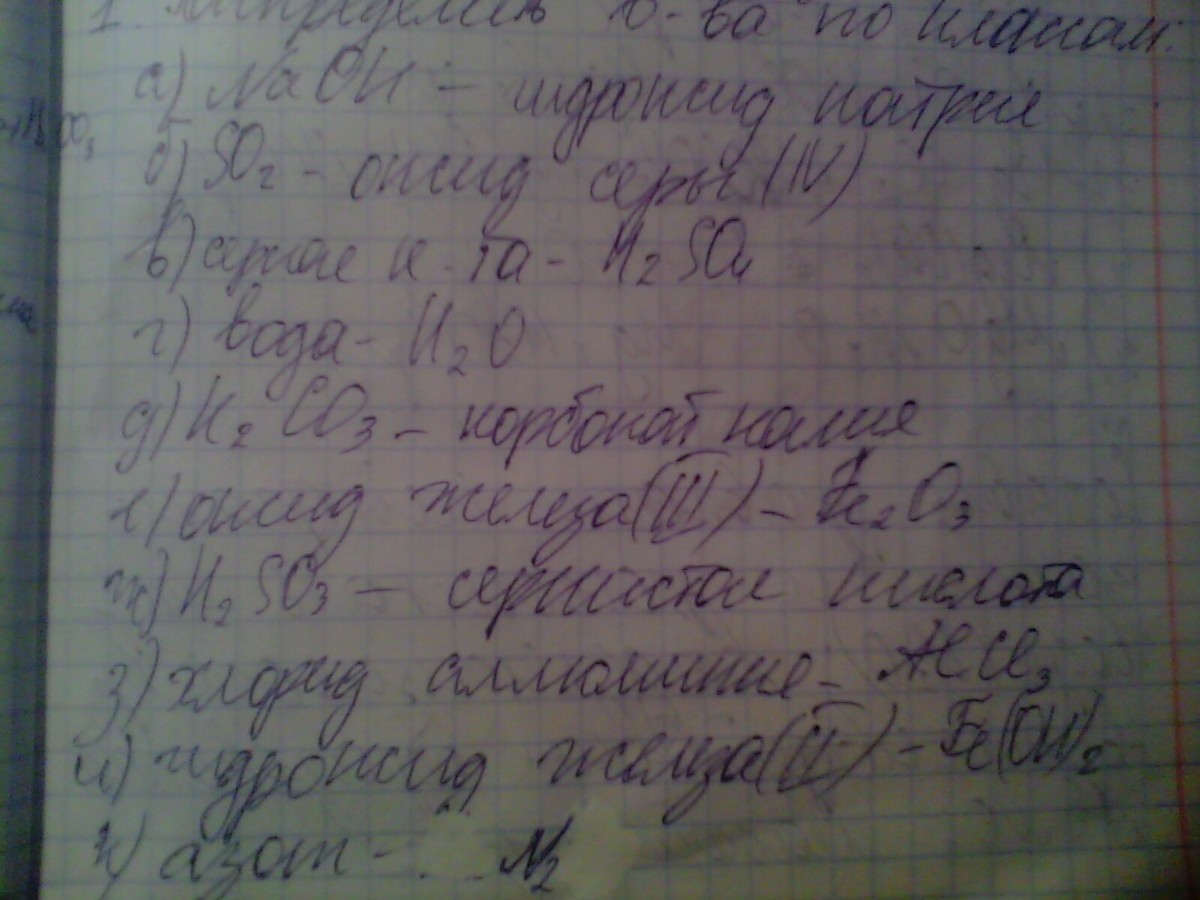 1. Определить в-ва по классам:
а) NaOH – гидроксид натрия
б) SO2 – оксид серы (IV)
в) серная к-та – H2SO4
г) вода – H2O
д) K2CO3 – корбонат калия
е) оксид железа (III) – Fe2O3
ж) H2SO3 – сернистая кислота
з) хлорид аллюминия – AlCl3
и) гидроксид железа (II) – Fe(OH)2
к) азот – N2